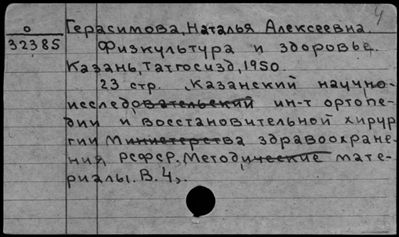 4
Герасимова, Наталья Алексеевна.
о
32385
Физкультура и здоровье.
Казань, Татгосизд, 1950.
23 стр. (Казанский научно-
исследовательский ин-т ортопе-
дии и восстановительной хирур-
гии Министерства здравоохране-
ния РСФСР. Методические мате-
риалы. В. 4).